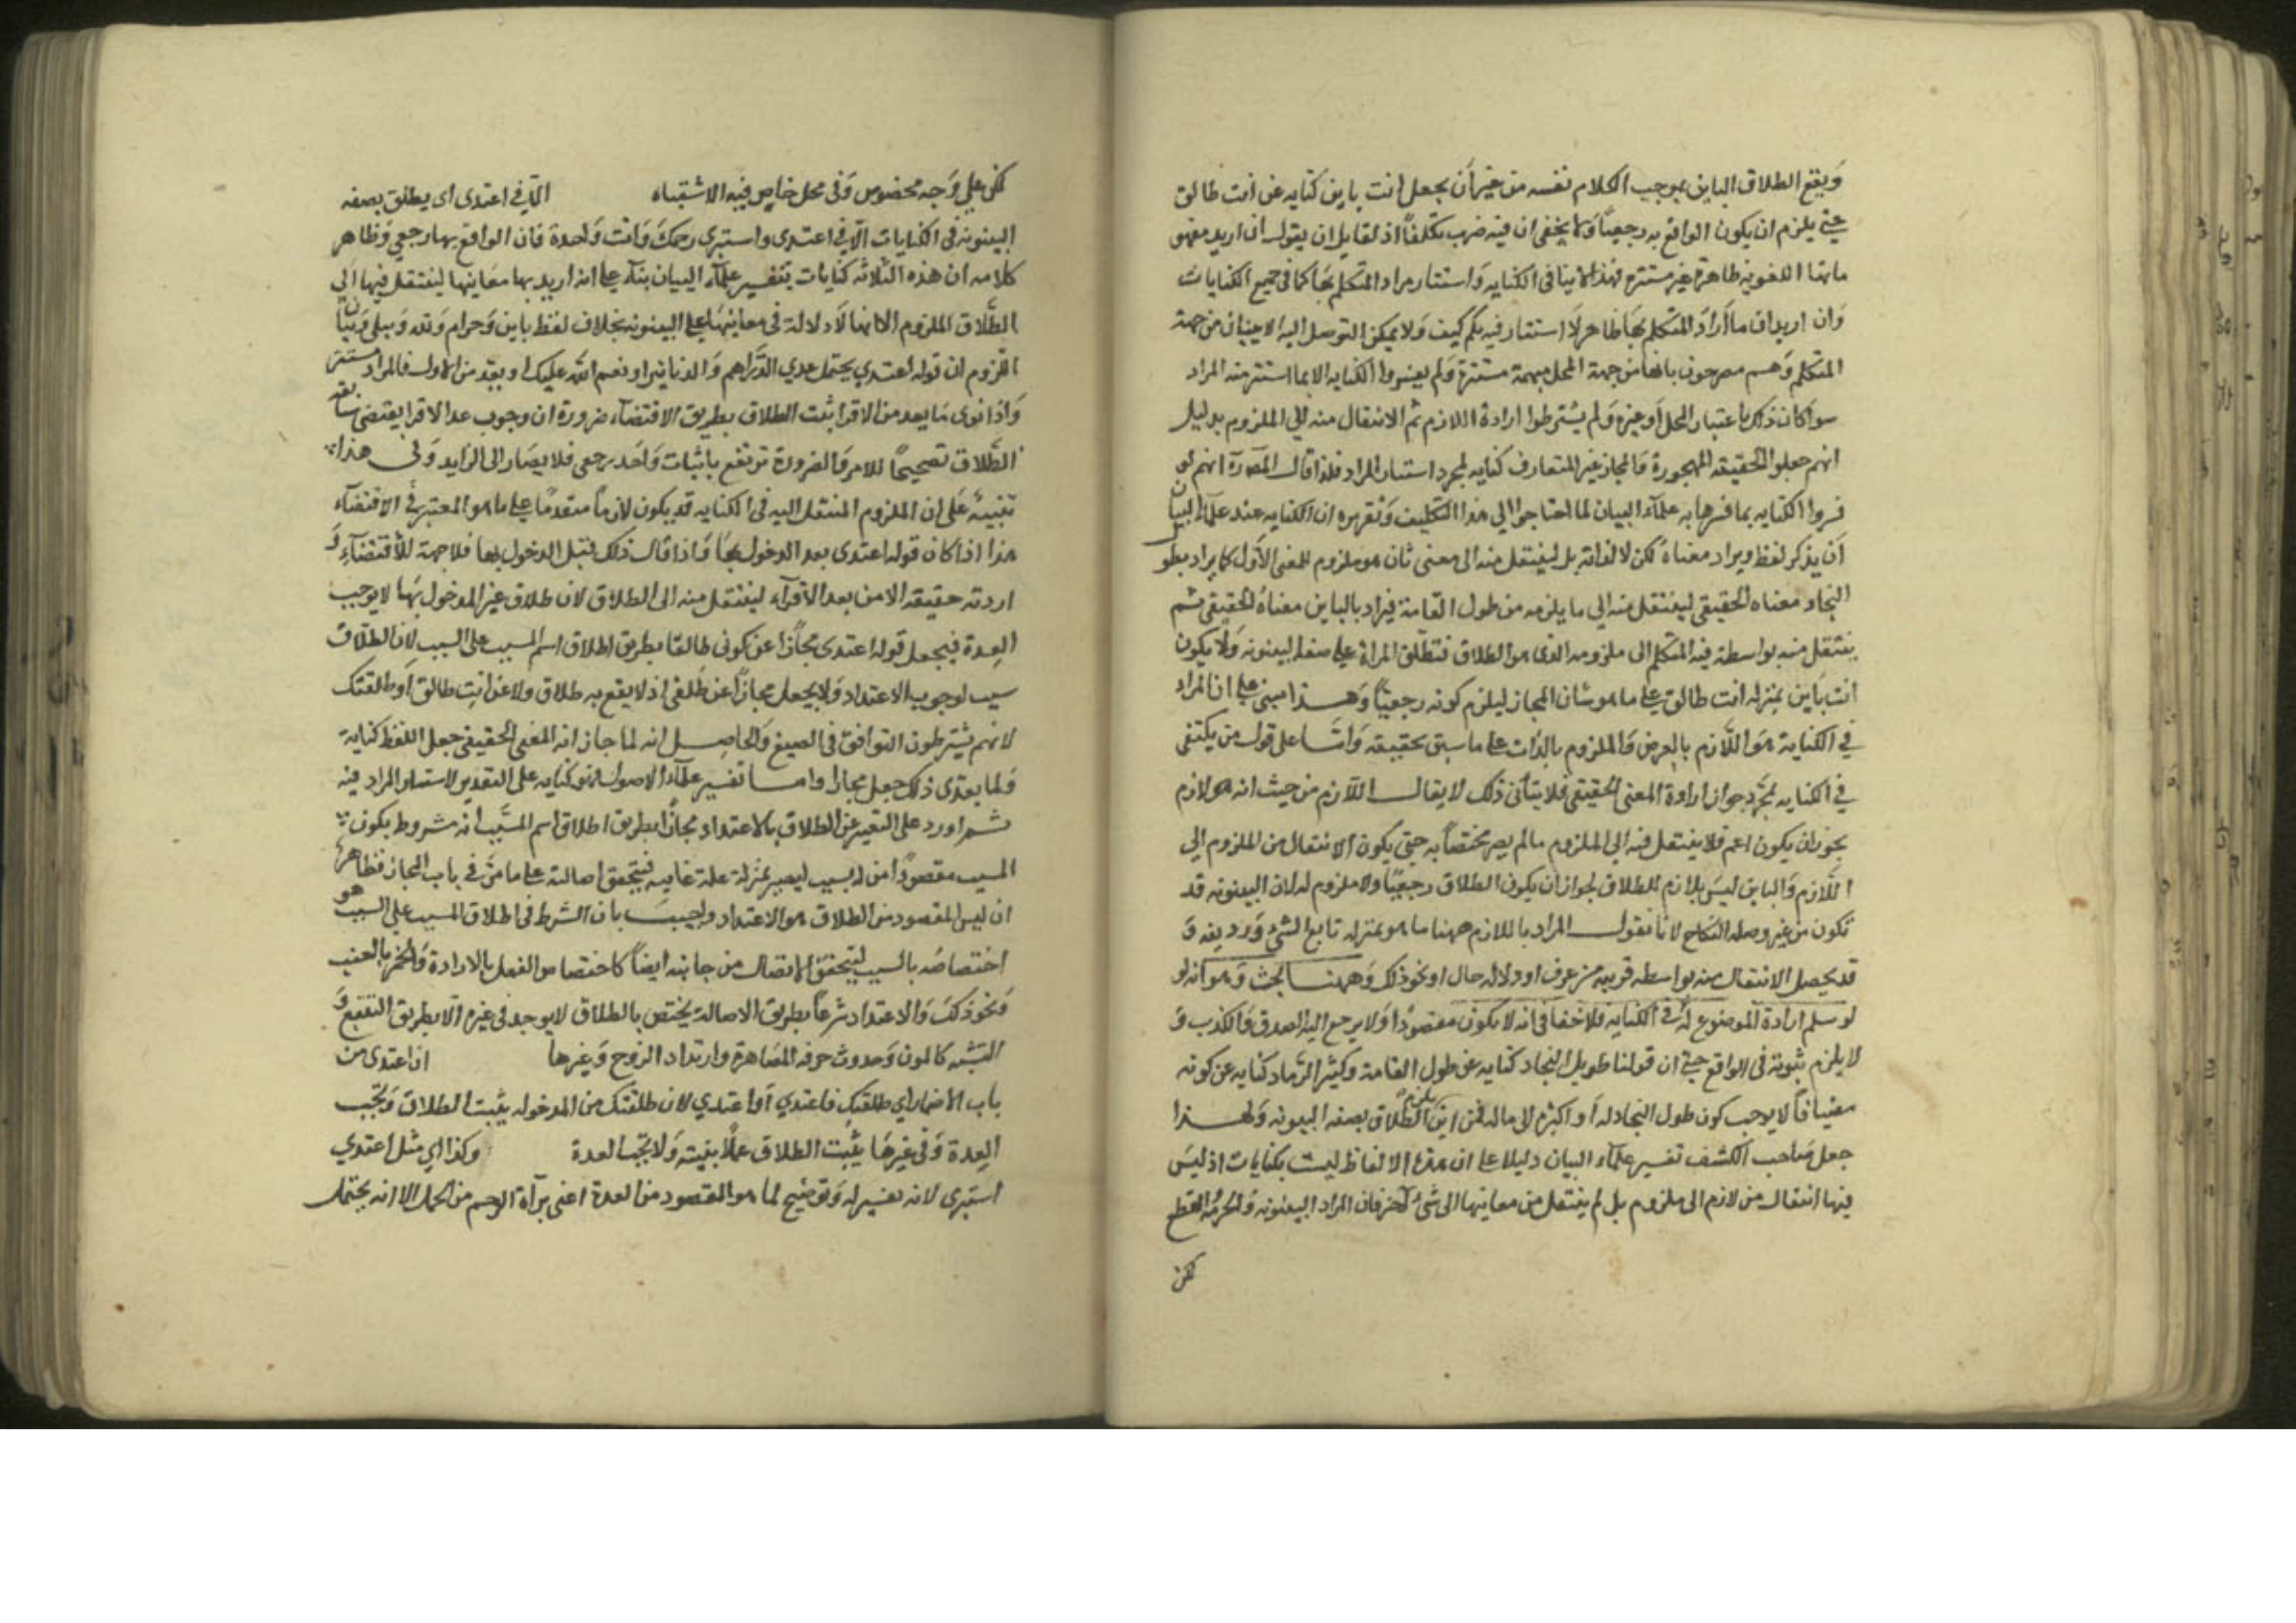 وَيقع الطلاق الباين بموجب الكلام نفسه من غير أن يجعل انت باين كنايه عن انت طالق
حتى يلزم ان يكون الواقع به رجعيًا وَلا يخفى ان فيه ضرب تكلفًا اذ لقايل ان يقول ان اريد مفهو
ماتها اللغويه ظاهرة غير مستتره فهذا لا ينافى الكنايه وَاستتار مراد المتكلم بها كما فى جميع الكنايات
وَان اريد ان ما أرادَ المتكلم بها ظاهر لَا استتار فيه بكم كيف وَلا يمكن التوصل اليه الا ببيان من جهة
المتكلم وَهم مصرحون بانها من جهة المحل مبهمة مستترة وَلم يفسروا الكنايه الا بما استتر منه المراد
سوا كان ذلك باعتبار المحل أو غيره وَلم يشترطوا ارادة اللازم ثم الانتقال منه الي الملزوم بدليل
انهم جعلوا الحقيقه المهجورة وَالمجاز غير المتعارف كنايه لمجرد استتار المراد فلذا قال المص رَه انهم لو
فسروا الكنايه بما فسرها به علمآء البيان لما احتاجوا الي هذا التكليف وَتقريره ان الكنايه عند علمآء البيان
أن يذكر لفظ ويراد معناهُ لكن لا لذاته بل لينتقل منه الى معنى ثان هو ملزوم للمعنى الأول كما يراد بطو
النجاد معناه الحقيقى لينتقل منه الي ما يلزمه من طول القامة فيراد بالباين معناهُ الحقيقى ثم
ينتقل منه بواسطة نية المتكلم الى ملزومه الذى هو الطلاق فتطلق المراة على صفة البينونه وَلا يكون
انت بَاين بمنزله انت طالق على ما هو شان المجاز ليلزم كونه رجعيًا وَهذا مبنى على ان المراد
في الكناية هَو اللّازم بالعرض وَالملزوم بالذات على ما سبق تحقيقه وَامّا على قول من يكتفى
في الكنايه بمجرّد جواز ارادة المعنى الحقيقى فلا يتأتى ذلك لا يقال اللّازم من حيث انه هو لازم
يجوز ان يكون اعم فلا ينتقل منه الي الملزوم مالم يصر مختصاً به حتى يكون الانتقال من الملزوم الي
اللّازم وَالباين ليسَ بلازم للطلاق لجواز ان يكون الطلاق رجعيًا ولا ملزوم له لان البينونه قد
تكون من غير وصلة النكاح لانا نقول المراد باللازم ههنا ما هو بمنزله تابع الشئ وَرديفه وَ
قد يحصل الانتقال منه بواسطه قرينه من عرف او دلاله حال او نحو ذلك وَههنا بحث وَهو انه لو
لو سلم ارادة الموضوع لَه فى الكنايه فلا خفا فى انه لا يكون مقصودًا وَلا يرجع اليه الصدق وَالكذب وَ
لا يلزم ثبوته فى الواقع حتى ان قولنا طويل النجاد كنايه عن طول القامة وكثير الرّماد كنايه عن كونه
مضيافًا لا يوجب كون طول النجاد له أو اكثر الى ماله فمن اين يلزم الطّلاق بصفه البينونه وَلهذا
جعل صَاحب الكشف تفسير علمآء البيان دليلا على ان هذه الالفاظ ليست بكنايات اذ ليسَ
فيها انتقال من لازم الى ملزوم بل لم ينتقل من معاينها الى شئٍ آخر فان المراد البينونه وَالحرمُه القطع
لكن
لكن علي وَجه مخصوص وَفى محل خاص فيه الاشتباه الّا في اعتدى اى يطلق بصفه
البينونه فى الكنايات الّا فى اعتدى واستبرى رحمكَ وَانت وَاحدة فان الواقع بها رجعي وَظاهر
كلامه ان هذه الثلاثه كنايات بتفسير علمآء البيان بنآء على انه اريد بها معَاينها لينتقل منها الي
الطّلاق الملزوم الا انها لَا دلالة فى معاينهَا على البينونه بخلاف لفظ باين وَحرام وَبته وَبتلى وَبيان
اللّزوم ان قوله اعتدي يحتمل عدي الدّراهم وَالدنانير او نعم الله عليك او بعد من الاول فالمراد مستتر
وَاذا نوى مَا يعد من الاقرا ثبت الطلاق بطريق الاقتضآء ضرورة ان وجوب عد الاقرا يقتضى سابقه
الطّلاق تصحيحًا للامر وَالضرورة ترتفع باثبات وَاحد رجعى فلا يصَار الى الزايد وَفى هذا
تنبيه عَلى ان الملزوم المنتقل اليه فى الكنايه قد يكون لازماً متقدمًا على ما هو المعتبر فى الاقتضآء
هذا اذا كان قوله اعتدى بعد الدخول بهَا وَاذا قال ذلك قبل الدخول بها فلا جهة للأقتضآءِ وَ
اردته حقيقه الامن بعد الأقرآء لينتقل منه الى الطلاق لان طلاق غير المدخول بهَا لا يوجب
العِدة فيجعل قوله اعتدى مجازًا عن كونى طالقا بطريق اطلاق اسم المسبب على السبب لان الطلاق
سبب لوجوب الاعتداد وَلا يجعل مجازًا عن طلقى اذ لا يقع به طلاق ولا عن انت طالق اَو طلقتك
لانهم يشترطون التوافق فى الصيغ وَالحاصل انه لما جاز انه المعنى الحقيقى جعل اللفظ كناية
وَلما بعدى ذلك جعل مجازا واما تفسير علمآء الاصول فهو كنايه على التقدير لاستتار المراد فيه
ثم اورد على التعبير عن الطلاق بالاعتداد مجازًا بطريق اطلاق اسم المسَبب انه مشروط بكون
المسبب مقصودًا من السبب ليصير بمنزلة علة غاييه فيتحقق اصالته على ما مَرّ فى باب المجاز فظاهر
ان ليس المقصود من الطلاق هو الاعتداد واجيبَ بان الشرط فى اطلاق المسبب على السبب هو
اختصاصُه بالسبب ليتحقق الاتصال من جانبه ايضاً كاختصاص الفعل بالارادة وَالخمر بالعنب
وَنحو ذكَ وَالاعتداد شرعاً بطريق الاصالة يختص بالطلاق لا يوجد فى غيره الّا بطريق التتبع وَ
التشبه كالموت وَحدوث حرفه المصَاهرة وارتداد الزوج وَغيرها اذ اعتدى من
باب الاضمار اي طلقتكِ فاعتدي أو اعتدي لان طلقتك من المدخوله يثبت الطلاق وَتجب
العِدة وَفى غيرهَا يثبت الطلاق عملًا بنيته وَلا تجب العدة وكذا اي مثل اعتدي
استبرى لانه تفسير له وَتوضيح لما هو المقصود من العدة اعنى برآءة الرحم من الحمل الا انه يحتمل